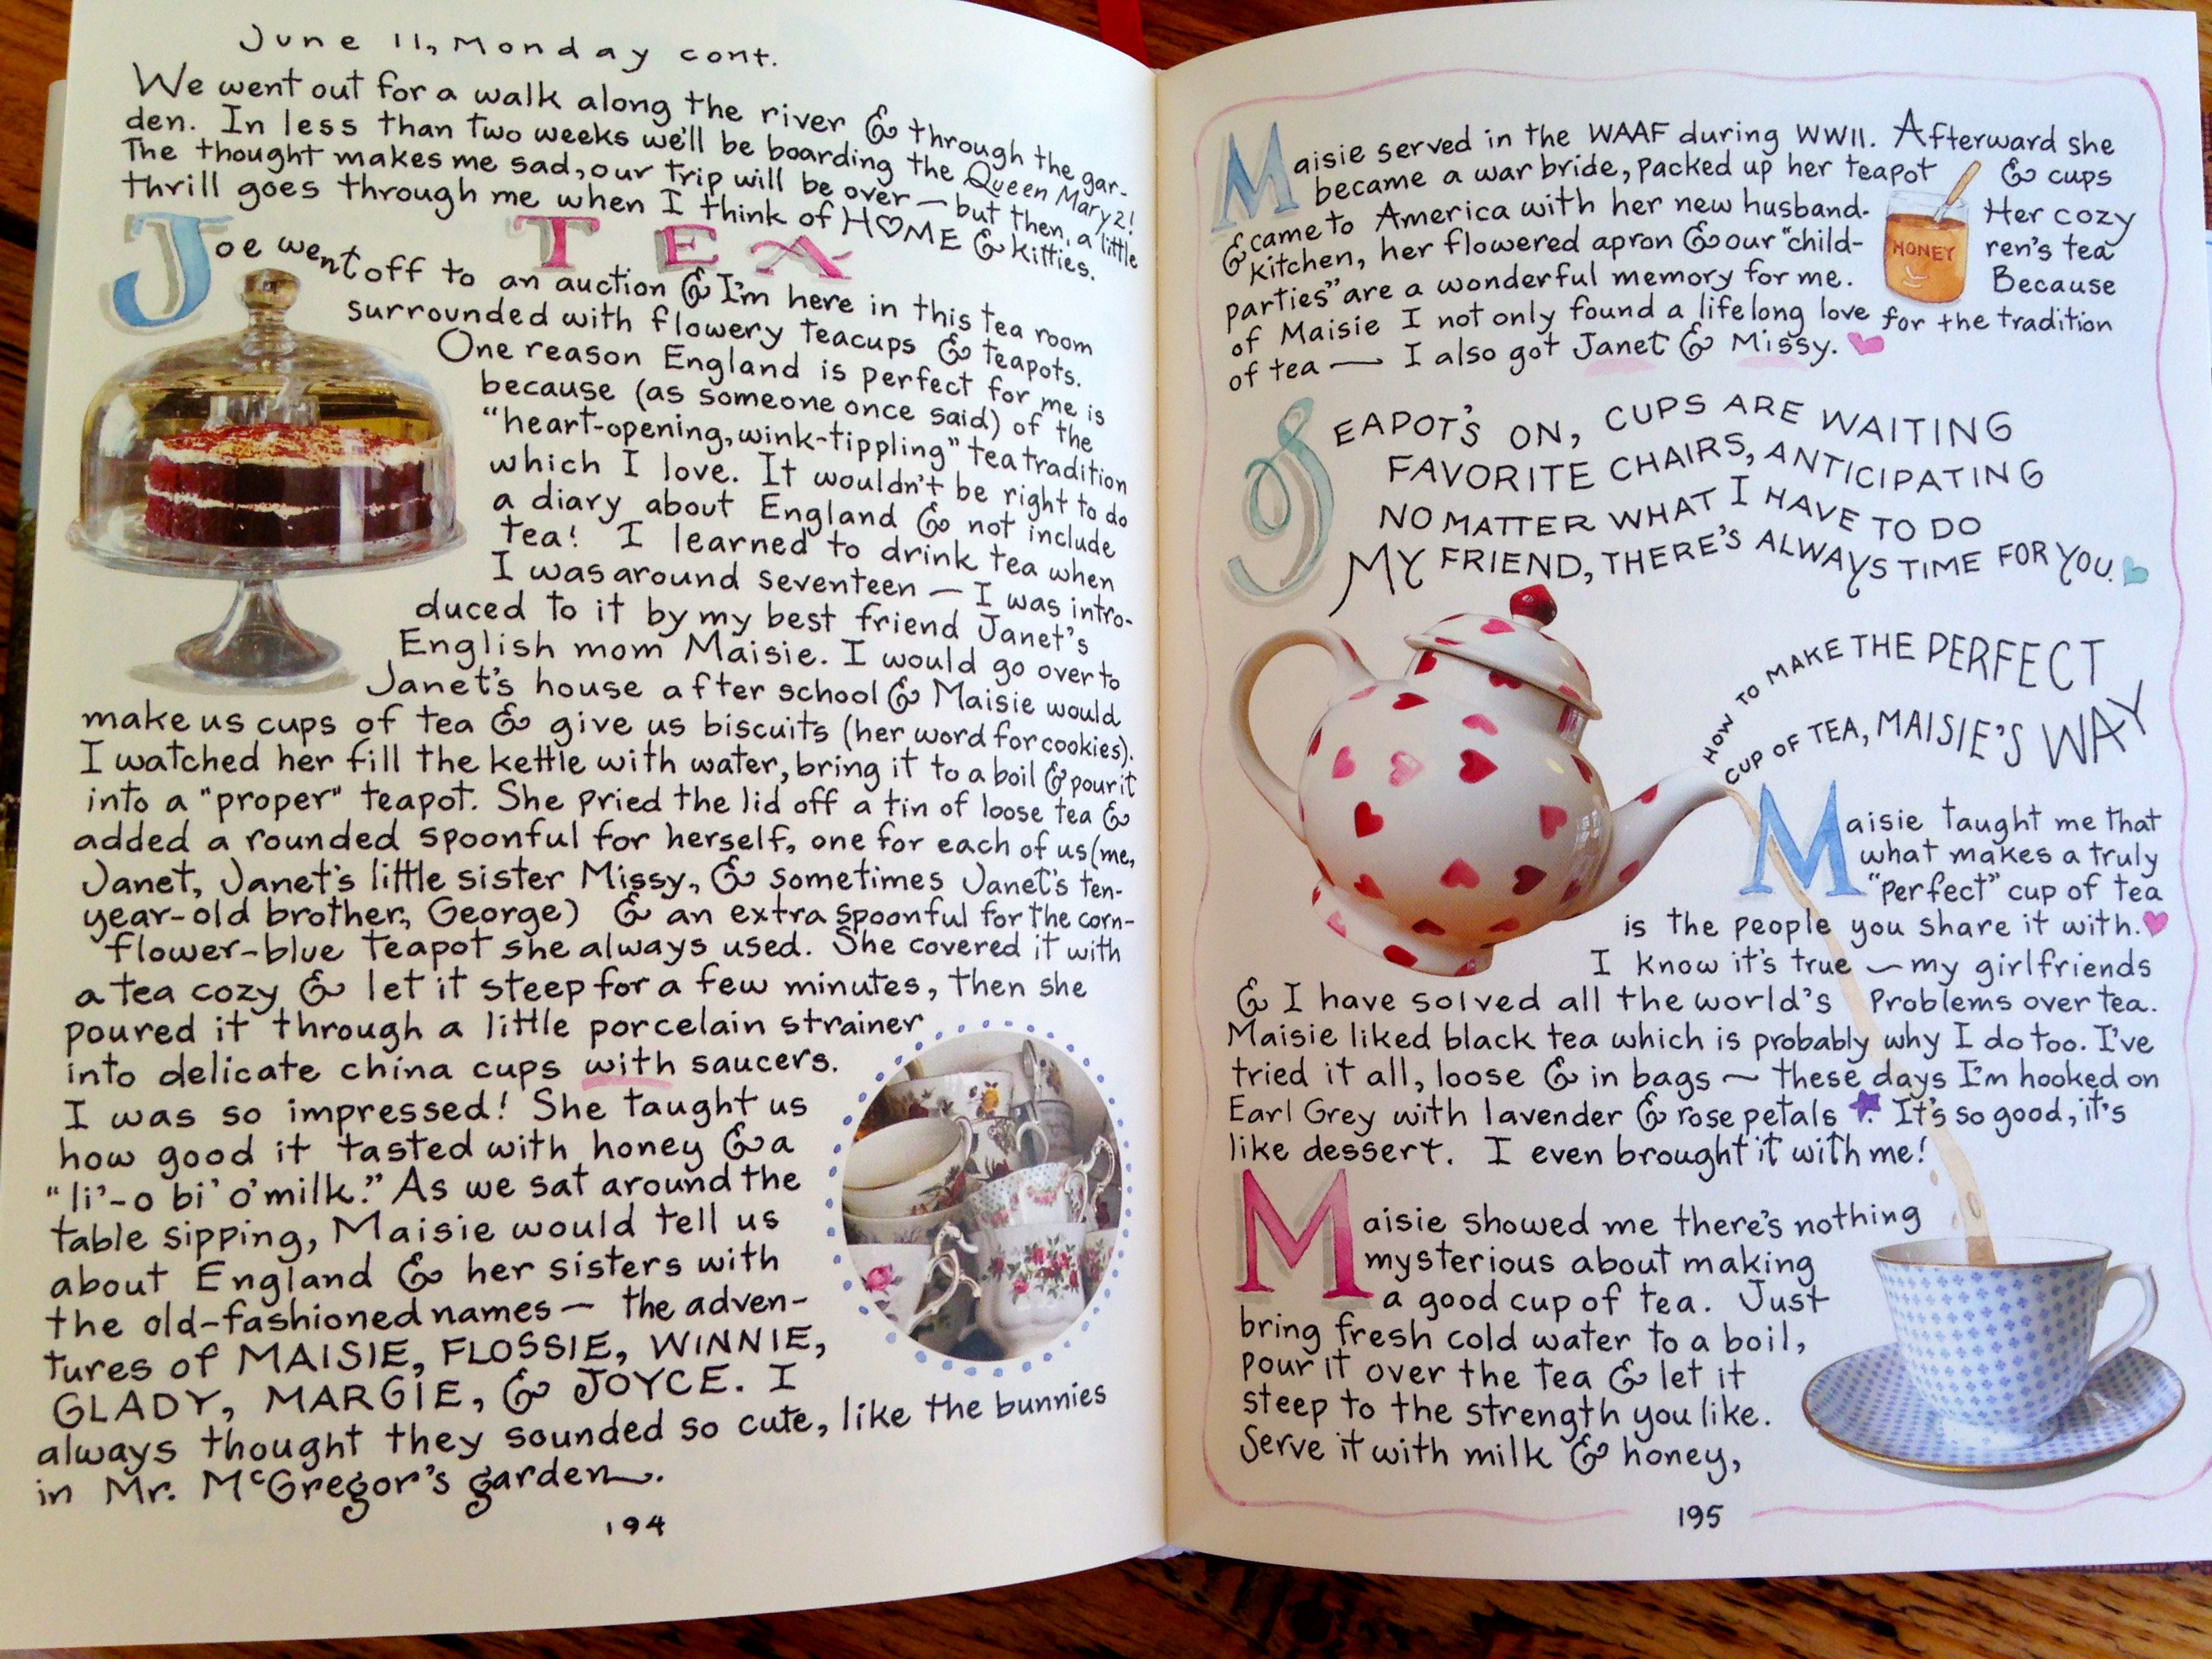 June 11, Monday cont.
We went out for a walk along the river & through the gar-
den. In less than two weeks we'll be boarding the Queen Mary 2!
The thought makes me sad, our trip will be over — but then, a little
thrill goes through me when I think of H♡ME & kitties.
TEA
Joe went off to an auction & I'm here in this tea room
surrounded with flowery teacups & teapots.
One reason England is perfect for me is
because (as someone once said) of the
"heart-opening, wink-tippling" tea tradition
which I love. It wouldn't be right to do
a diary about England & not include
tea! I learned to drink tea when
I was around seventeen — I was intro-
duced to it by my best friend Janet's
English mom Maisie. I would go over to
Janet's house after school & Maisie would
make us cups of tea & give us biscuits (her word for cookies).
I watched her fill the kettle with water, bring it to a boil & pour it
into a "proper" teapot. She pried the lid off a tin of loose tea &
added a rounded spoonful for herself, one for each of us (me,
Janet, Janet's little sister Missy, & sometimes Janet's ten-
year-old brother, George) & an extra spoonful for the corn-
flower-blue teapot she always used. She covered it with
a tea cozy & let it steep for a few minutes, then she
poured it through a little porcelain strainer
into delicate china cups with saucers.
I was so impressed! She taught us
how good it tasted with honey & a
"li'-o bi' o' milk." As we sat around the
table sipping, Maisie would tell us
about England & her sisters with
the old-fashioned names — the adven-
tures of MAISIE, FLOSSIE, WINNIE,
GLADY, MARGIE, & JOYCE. I
always thought they sounded so cute, like the bunnies
in Mr. McGregor's garden.
194
Maisie served in the WAAF during WWII. Afterward she
became a war bride, packed up her teapot & cups
& came to America with her new husband. Her cozy
kitchen, her flowered apron & our "child-ren's tea
parties" are a wonderful memory for me. Because
of Maisie I not only found a lifelong love for the tradition
of tea — I also got Janet & Missy.
HONEY
TEAPOT'S ON, CUPS ARE WAITING
FAVORITE CHAIRS, ANTICIPATING
NO MATTER WHAT I HAVE TO DO
MY FRIEND, THERE'S ALWAYS TIME FOR YOU.
HOW TO MAKE THE PERFECT
CUP OF TEA, MAISIE'S WAY
Maisie taught me that
what makes a truly
"perfect" cup of tea
is the people you share it with.
I know it's true — my girlfriends
& I have solved all the world's problems over tea.
Maisie liked black tea which is probably why I do too. I've
tried it all, loose & in bags — these days I'm hooked on
Earl Grey with lavender & rose petals. It's so good, it's
like dessert. I even brought it with me!
Maisie showed me there's nothing
mysterious about making
a good cup of tea. Just
bring fresh cold water to a boil,
pour it over the tea & let it
steep to the strength you like.
Serve it with milk & honey,
195